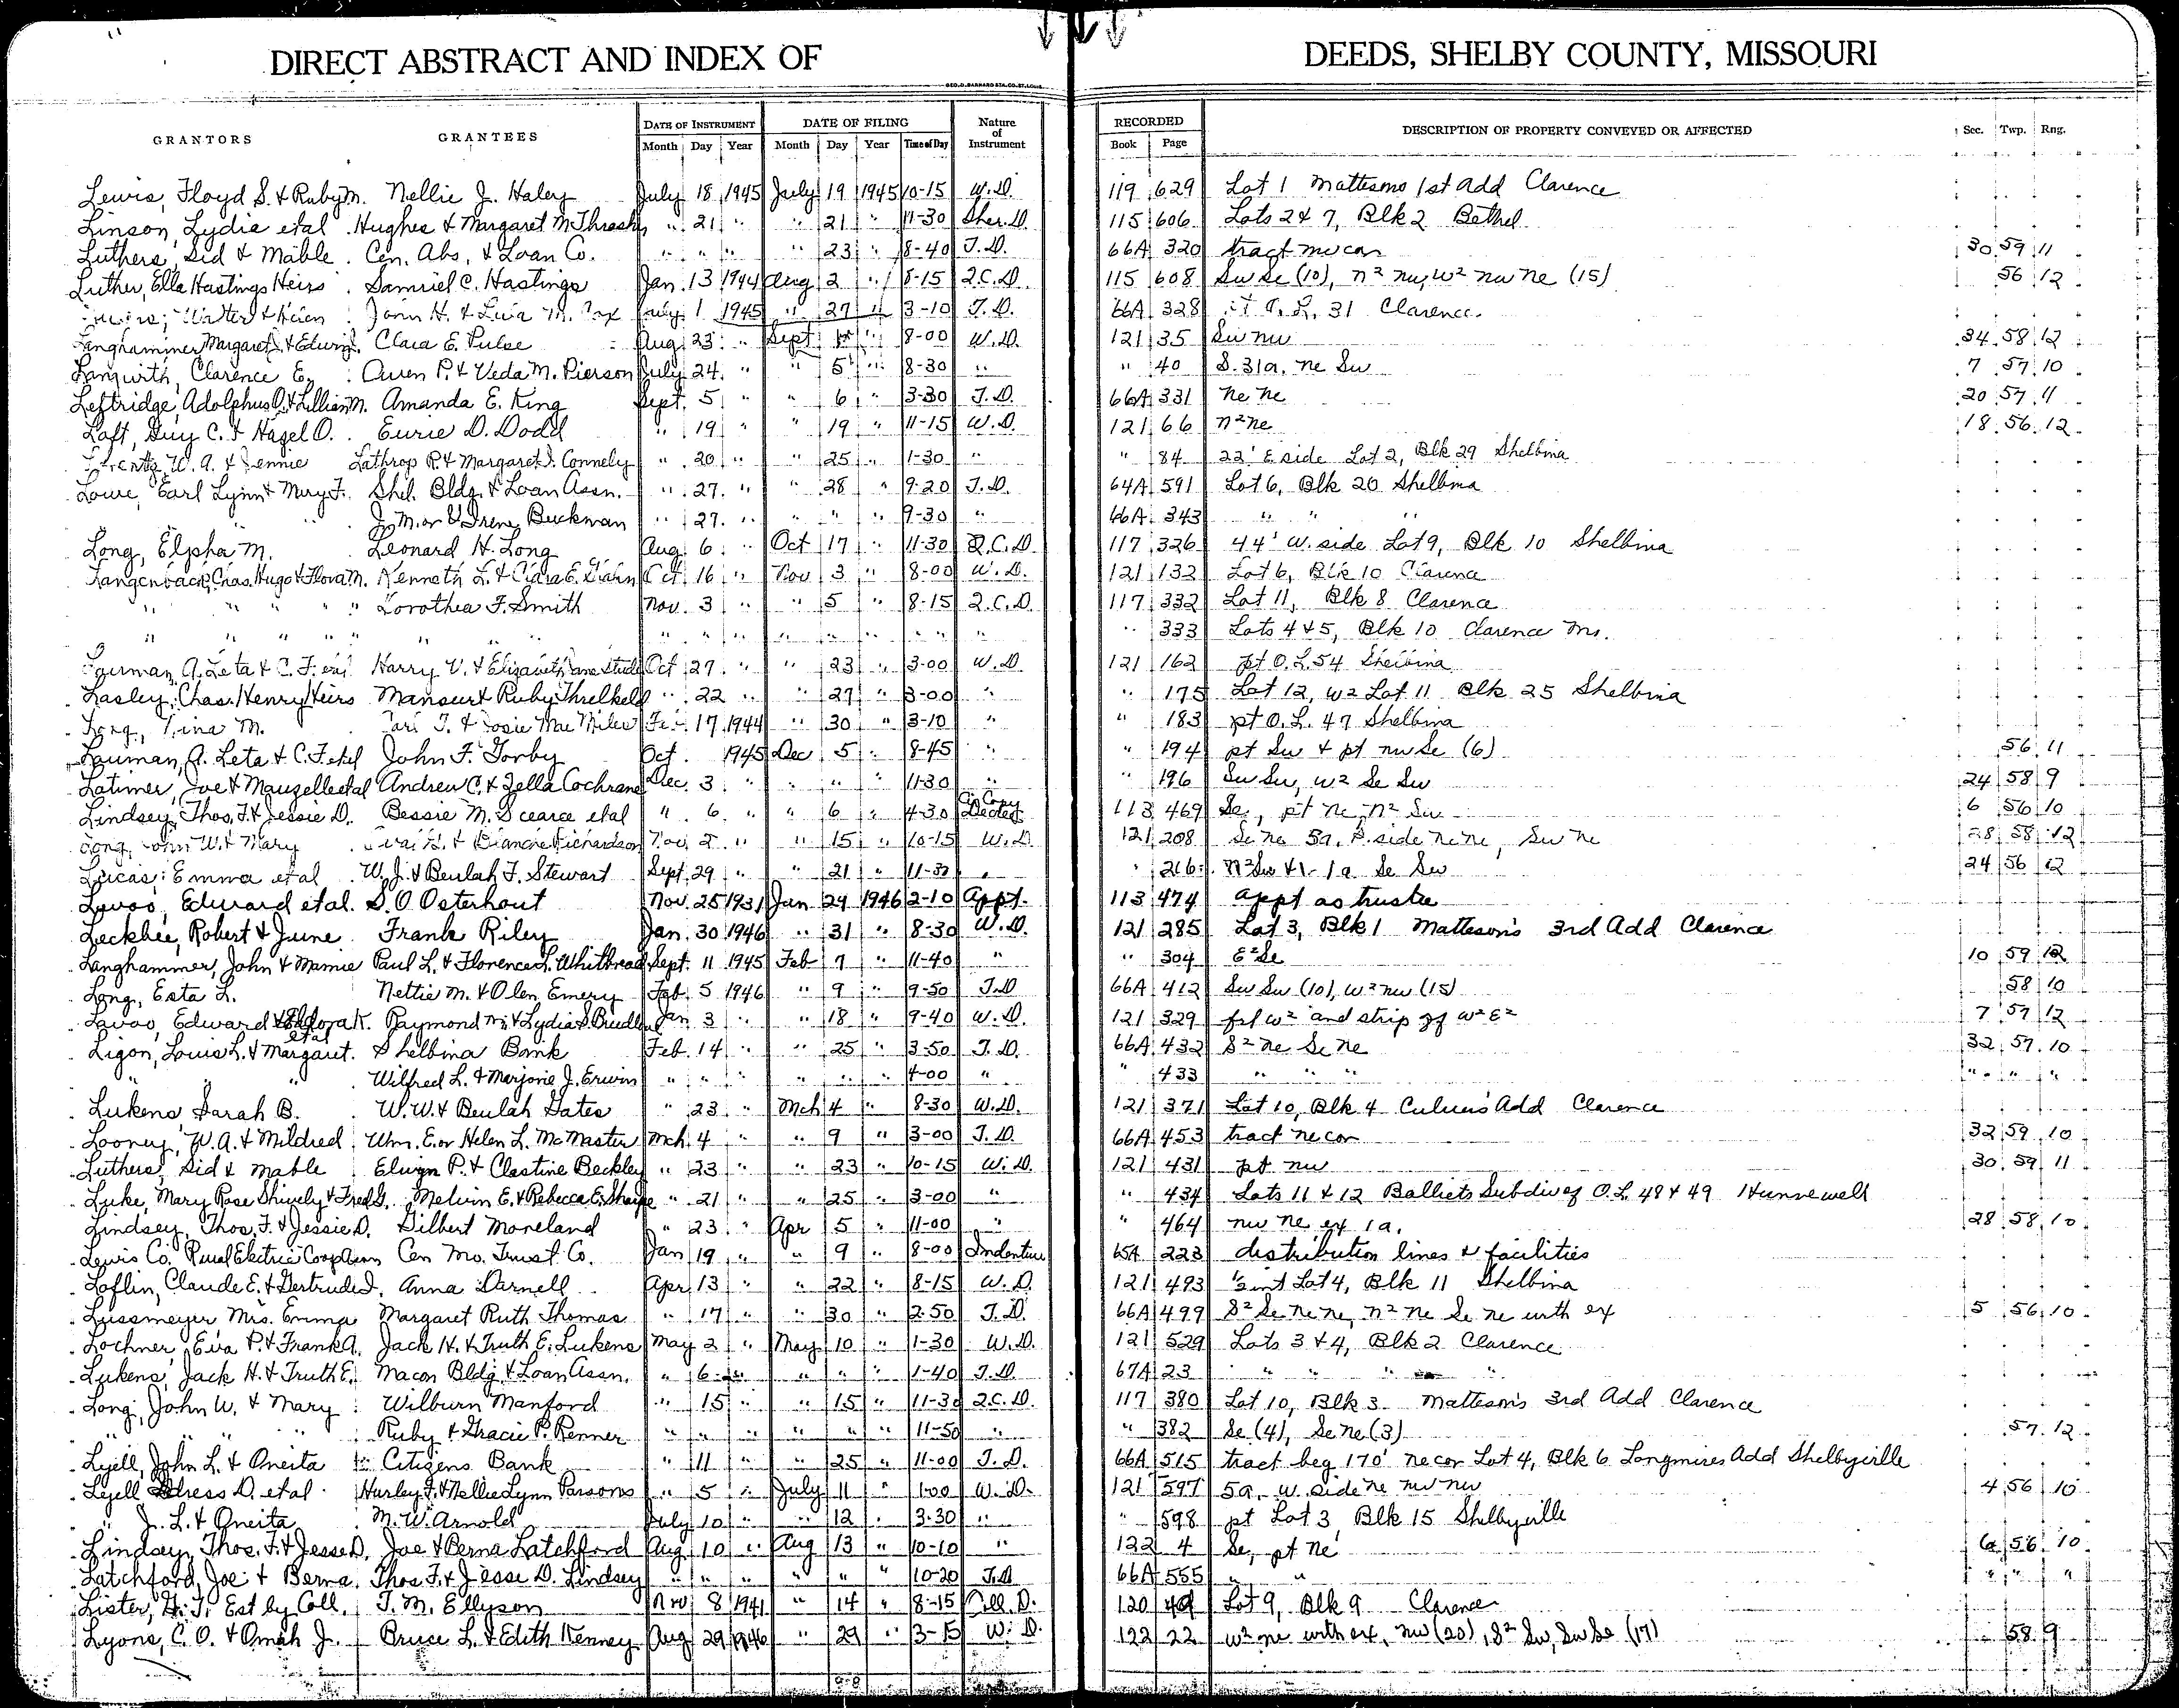 DIRECT ABSTRACT AND INDEX OF DEEDS, SHELBY COUNTY, MISSOURI
GEO. D. BARNARD STA. CO. ST. LOUIS
GRANTORS GRANTEES DATE OF INSTRUMENT DATE OF FILING Nature of Instrument RECORDED DESCRIPTION OF PROPERTY CONVEYED OR AFFECTED Sec. Twp. Rng.
Month Day Year Month Day Year Time of Day Book Page
Lewis, Floyd S. & Ruby M. Nellie J. Haley July 18 1945 July 19 1945 10-15 W.D. 119 629 Lot 1 Mattesons 1st Add Clarence
Linson, Lydia etal Hughes & Margaret M. " 21 " " 21 " 11-30 Sher. D. 115 606 Lots 2 & 7, Blk 2 Bethel
Luthers, Sid & Mable Cen. Abs. & Loan Co. " " " " 23 " 8-40 T.D. 66A 320 tract nw cor 30 59 11
Luther, Ella Hastings Heirs Samuel C. Hastings Jan. 13 1944 Aug 2 " 8-15 Q.C.D. 115 608 Sw Se (10), n2 nw, w2 nw ne (15) 56 12
Walter & Helen John H. & M. Cox July 1 1945 " 27 " 3-10 T.D. 66A 328 O.L. 31 Clarence
Langhammer, Margaret & Edwin Clara E. Pulse Aug 23 " Sept " 8-00 W.D. 121 35 Sw nw 34 58 12
Langwith, Clarence E. Owen P. & Veda M. Pierson July 24 " " 5 " 8-30 " " 40 S. 31a. ne Sw 7 57 10
Leftridge, Adolphus O. & Lillian M. Amanda E. King Sept. 5 " " 6 " 3-30 T.D. 66A 331 ne ne 20 57 11
Laft, Guy C. & Hazel O. Eurie D. Dodd " 19 " " 19 " 11-15 W.D. 121 66 n2 ne 18 56 12
W.A. & Jennie Lathrop P. & Margaret J. Connely " 20 " " 25 " 1-30 " " 84 22' E side Lot 2, Blk 29 Shelbina
Lowe, Earl Lynn & Mary F. Shel. Bldg. & Loan Assn. " 27 " " 28 " 9-20 T.D. 64A 591 Lot 6, Blk 20 Shelbina
" " J.M. or V. Irene Buckman " 27 " " " " 9-30 " 66A 343 " " "
Long, Elpha M. Leonard H. Long Aug 6 " Oct 17 " 11-30 Q.C.D. 117 326 44' W. side Lot 9, Blk 10 Shelbina
Langenback, Chas. Hugo & Flora M. Kenneth L. & Clara E. Oct 16 " Nov 3 " 8-00 W.D. 121 132 Lot 6, Blk 10 Clarence
" " " " Dorothea F. Smith Nov. 3 " " 5 " 8-15 Q.C.D. 117 332 Lot 11, Blk 8 Clarence
" " " " " " " " " " " " " " " 333 Lots 4 & 5, Blk 10 Clarence Mo.
Lauman, A. Leta & C.F. etal Harry V. & Elizabeth Jane Oct 27 " " 23 " 3-00 W.D. 121 162 pt O.L. 54 Shelbina
Lasley, Chas. Henry Heirs Mansur & Ruby Threlkeld " 22 " " 27 " 3-00 " " 175 Lot 12, w2 Lot 11 Blk 25 Shelbina
Long, M. T. & Josie Mae Miles Feb 17 1944 " 30 " 3-10 " " 183 pt O.L. 47 Shelbina
Lauman, A. Leta & C.F. etal John F. Torby Oct. 1945 Dec 5 " 8-45 " " 194 pt Sw & pt nw Se (6) 56 11
Latimer, Joe & Mauzelle etal Andrew C. & Zella Cochrane Dec. 3 " " " " 11-30 " " 196 Sw Sw, w2 Se Sw 24 58 9
Lindsey, Thos. F. & Jessie D. Bessie M. Scearce etal " 6 " " 6 " 4-30 Copy Decree 113 469 Se, pt ne, n2 Sw 6 56 10
Long, John W. & Mary & Blanche Richardson Nov. 2 " " 15 " 10-15 W.D. 121 208 Se ne 5a. side ne ne, Sw ne 28 58 12
Lucas, Emma etal W.J. & Beulah F. Stewart Sept 29 " " 21 " 11-30 " " 216 n2 Sw & 1-1a Se Sw 24 56 12
Lavoo, Edward etal. S.O. Osterhout Nov. 25 1931 Jan 24 1946 2-10 Appt. 113 474 Appt as trustee
Leckbee, Robert & June Frank Riley Jan. 30 1946 " 31 " 8-30 W.D. 121 285 Lot 3, Blk 1 Matteson's 3rd Add Clarence
Langhammer, John & Mamie Paul L. & Florence L. Whitbread Sept. 11 1945 Feb 7 " 11-40 " " 304 E2 Se 10 59 12
Long, Esta L. Nettie M. & Olen Emery Feb 5 1946 " 9 " 9-50 T.D. 66A 412 Sw Sw (10), w2 nw (15) 58 10
Lavoo, Edward & Eldora K. etal Raymond M. & Lydia S. Jan 3 " " 18 " 9-40 W.D. 121 329 frl w2 and strip of w2 E2 7 57 12
Ligon, Louis L. & Margaret Shelbina Bank Feb. 14 " " 25 " 3-50 T.D. 66A 432 S2 ne Se ne 32 57 10
" " Wilfred L. & Marjorie J. Erwin " " " " " " 4-00 " " 433 " " " " " "
Lukens, Sarah B. W.W. & Beulah Gates " 23 " Mch 4 " 8-30 W.D. 121 371 Lot 10, Blk 4 Culvers Add Clarence
Looney, W.A. & Mildred Wm. E. or Helen L. McMaster Mch. 4 " " 9 " 3-00 T.D. 66A 453 tract ne cor 32 59 10
Luthers, Sid & Mable Elwyn P. & Clestine Beckley " 23 " " 23 " 10-15 W.D. 121 431 pt nw 30 59 11
Luke, Mary Rose Shively & Fred G. Melvin E. & Rebecca E. Sharpe " 21 " " 25 " 3-00 " " 434 Lots 11 & 12 Balliets Subdiv of O.L. 48 & 49 Hunnewell
Lindsey, Thos. F. & Jessie D. Gilbert Moreland " 23 " Apr 5 " 11-00 " " 464 nw ne ex 1a. 28 58 10
Lewis Co. Rural Electric Coop Assn Cen Mo. Trust Co. Jan 19 " " 9 " 8-00 Indenture 65A 223 distribution lines & facilities
Laflin, Claude E. & Gertrude I. Anna Darnell Apr 13 " " 22 " 8-15 W.D. 121 493 ½ int Lot 4, Blk 11 Shelbina
Lussmeyer Mrs. Emma Margaret Ruth Thomas " 17 " " 30 " 2-50 T.D. 66A 499 S2 Se ne ne, n2 ne Se ne with ex 5 56 10
Lochner, Eva P. & Frank A. Jack H. & Truth E. Lukens May 2 " May 10 " 1-30 W.D. 121 529 Lots 3 & 4, Blk 2 Clarence
Lukens, Jack H. & Truth E. Macon Bldg & Loan Assn. " 6 " " " " 1-40 T.D. 67A 23 " " " "
Long, John W. & Mary Wilburn Manford " 15 " " 15 " 11-30 Q.C.D. 117 380 Lot 10, Blk 3 Matteson's 3rd Add Clarence
" " " Ruby & Gracie P. Renner " " " " " " 11-50 " " 382 Se (4), Se ne (3) 57 12
Lyell, John L. & Oneita Citizens Bank " 11 " " 25 " 11-00 T.D. 66A 515 tract beg 170' ne cor Lot 4, Blk 6 Longmires Add Shelbyville
Lyell Dress D. etal Hurley F. & Nellie Lynn Parsons " 5 " July 11 " 1-00 W.D. 121 597 5a. w. side ne nw nw 4 56 10
" J.L. & Oneita M.W. Arnold July 10 " " 12 " 3-30 " " 598 pt Lot 3 Blk 15 Shelbyville
Lindsey, Thos. F. & Jesse D. Joe & Berna Latchford Aug 10 " Aug 13 " 10-10 " 122 4 Se, pt ne 6 56 10
Latchford, Joe & Berna Thos F. & Jesse D. Lindsey " " " " " " 10-20 T.D. 66A 555 " " " " "
Lister, H.T. Est by Coll. T.M. Ellyson Nov 8 1941 " 14 " 8-15 Coll. D. 120 49 Lot 9, Blk 9 Clarence
Lyons, C.O. & Omah J. Bruce L. & Edith Kenney Aug 29 1946 " 29 " 3-15 W.D. 122 22 w2 ne with ex, nw (20), S2 Sw, Sw Se (17) 58 9